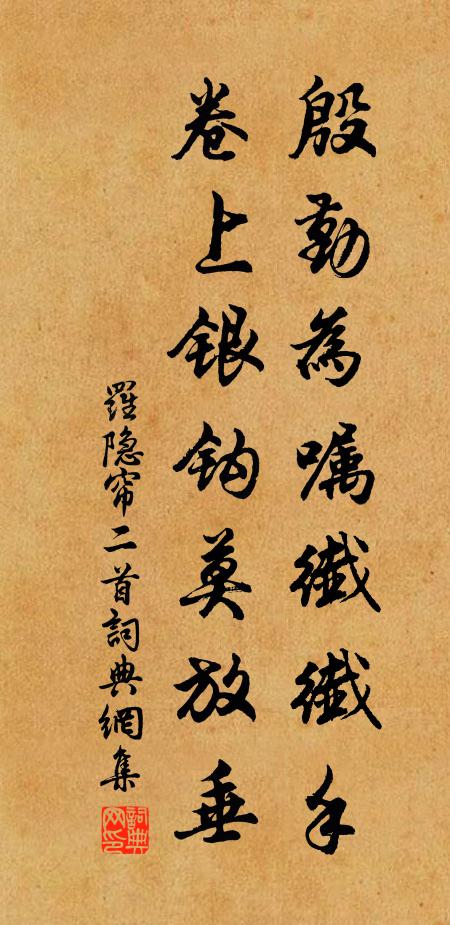 殷勤為嘱纖纖手
卷上銀钩莫放垂
羅隐帘二首詞典網集
詞典网印